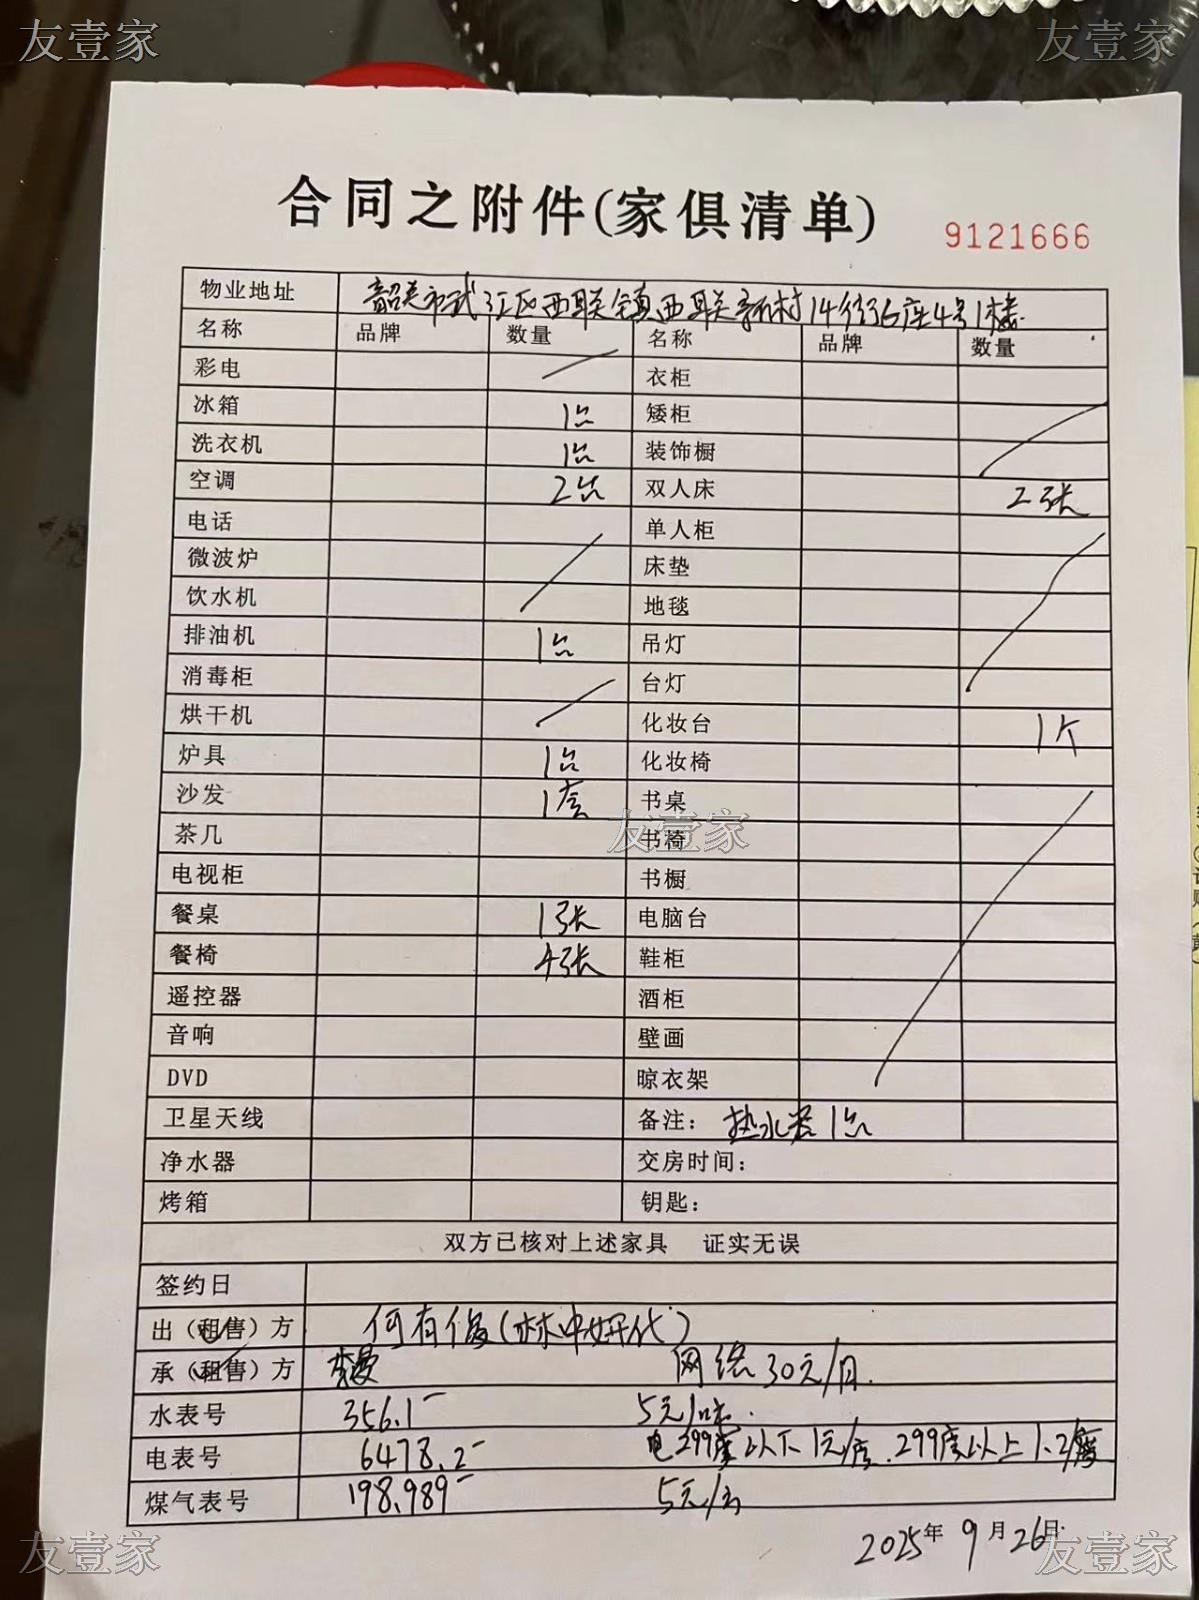 友壹家 友壹家
合同之附件(家俱清单)
9121666
物业地址 韶关市武江区西联镇西联新村14街6座4号1楼.
名称 品牌 数量 名称 品牌 数量
彩电 衣柜
冰箱 1台 矮柜
洗衣机 1台 装饰橱
空调 2台 双人床 2张
电话 单人柜
微波炉 床垫
饮水机 地毯
排油机 1台 吊灯
消毒柜 台灯
烘干机 化妆台 1个
炉具 1台 化妆椅
沙发 1套 书桌
友壹家
茶几 书椅
电视柜 书橱
餐桌 1张 电脑台
餐椅 4张 鞋柜
遥控器 酒柜
音响 壁画
DVD 晾衣架
卫星天线 备注: 热水器1台
净水器 交房时间:
烤箱 钥匙:
双方已核对上述家具 证实无误
签约日
出(租售)方 何有俊(林中妍代)
承(租售)方 李曼 网络30元/月.
水表号 356.1 5元/吨.
电表号 6478.2 电299度以下1元/度.299度以上1.2/度
煤气表号 198.989 5元/方
2025年9月26日
友壹家 友壹家